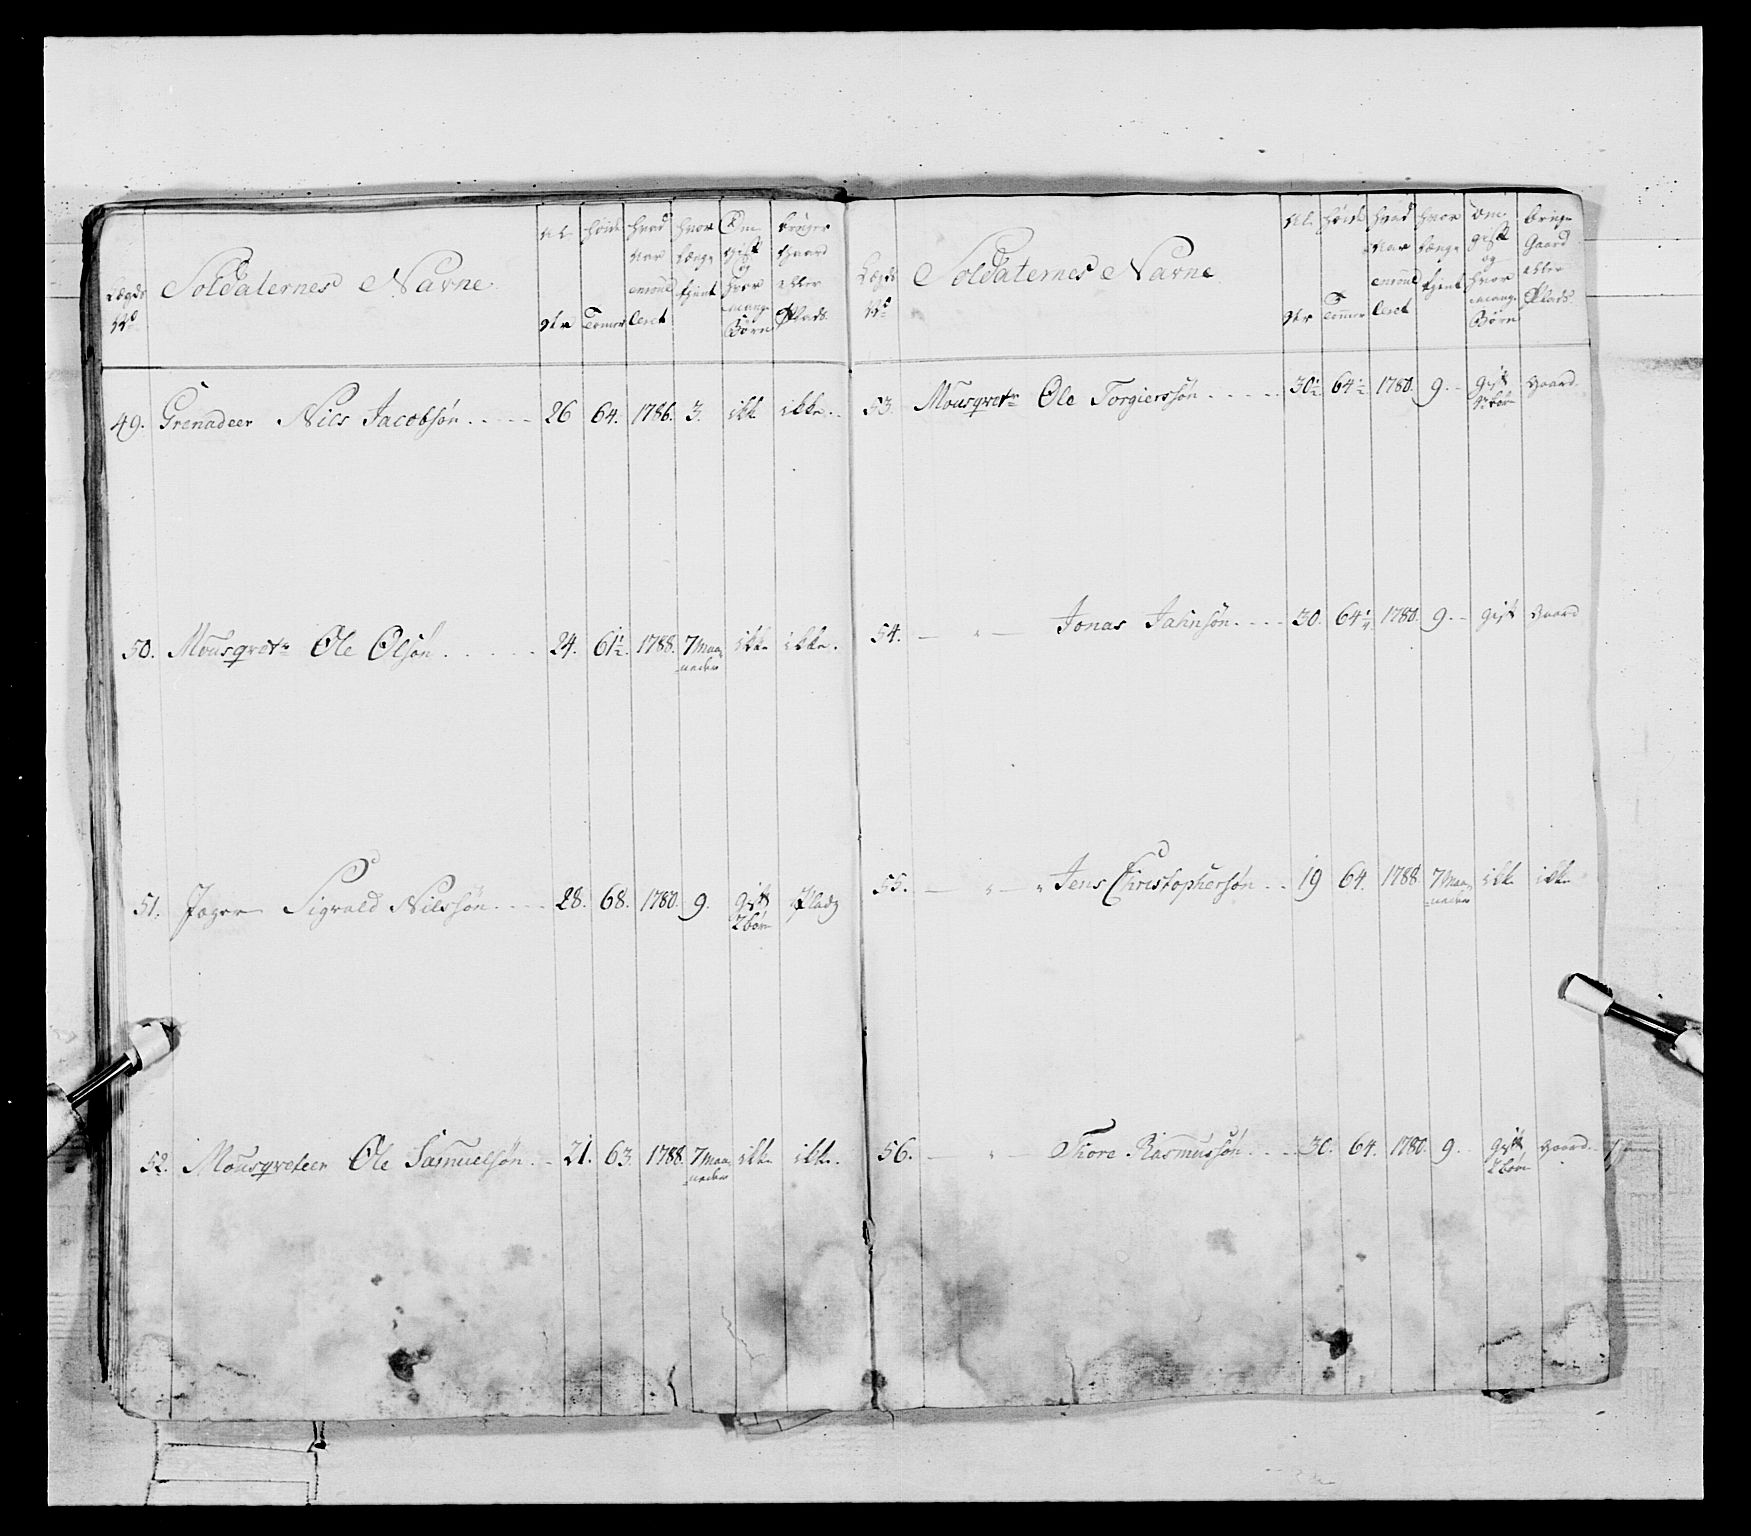 Lægds No
Soldaternes Navne
Al der
Høide Tommer
Hvad Aar enroulleret
Hvor længe tjent
Om gift og hvor mange Børn
bruger Gaard eller Plads
49. Grenadeer Nils Jacobsøn 26 64. 1786. 3. ikke ikke.
50. Mousqvetr Ole Olsøn 24. 61½. 1788. 7 Maaneder ikke ikke.
51. Jæger Sigvald Nilssøn 28. 68. 1780. 9. gift 2 børn Plads
52. Mousqveteer Ole Samuelsøn 21. 63. 1788. 7 Maaneder ikke ikke.
Lægds No
Soldaternes Navne
Al der
Høide Tommer
Hvad Aar enroulleret
Hvor længe tjent
Om gift og hvor mange Børn
bruge Gaard eller Plads
53. Mousqvetr Ole Torgierssøn 30½ 64½ 1780. 9. gift børn Gaard.
54. — " — Jonas Jahnsøn 30. 64¼ 1780. 9 gift Gaard
55. — " — " Jens Christophersøn 19 64. 1788 7 Maaneder ikke ikke
56. — " — Tore Rasmussøn 30. 64. 1780. 9. gift 2 børn Gaard.